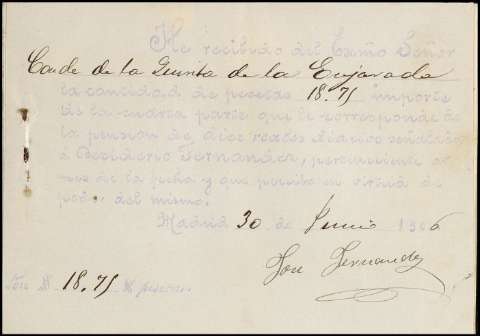 He recibido del Exmo Señor
Conde de la Quinta de la Enjarada
la cantidad de pesetas 18.75 importe
de la cuarta parte que le corresponde de
la pension de diez reales diarios señalada
á Desiderio Fernandez, perteneciente al
mes de la fecha y que percibo en virtud de
poder del mismo.
Madrid 30 de Junio 1906
José Fernandez
Son # 18.75 # pesetas